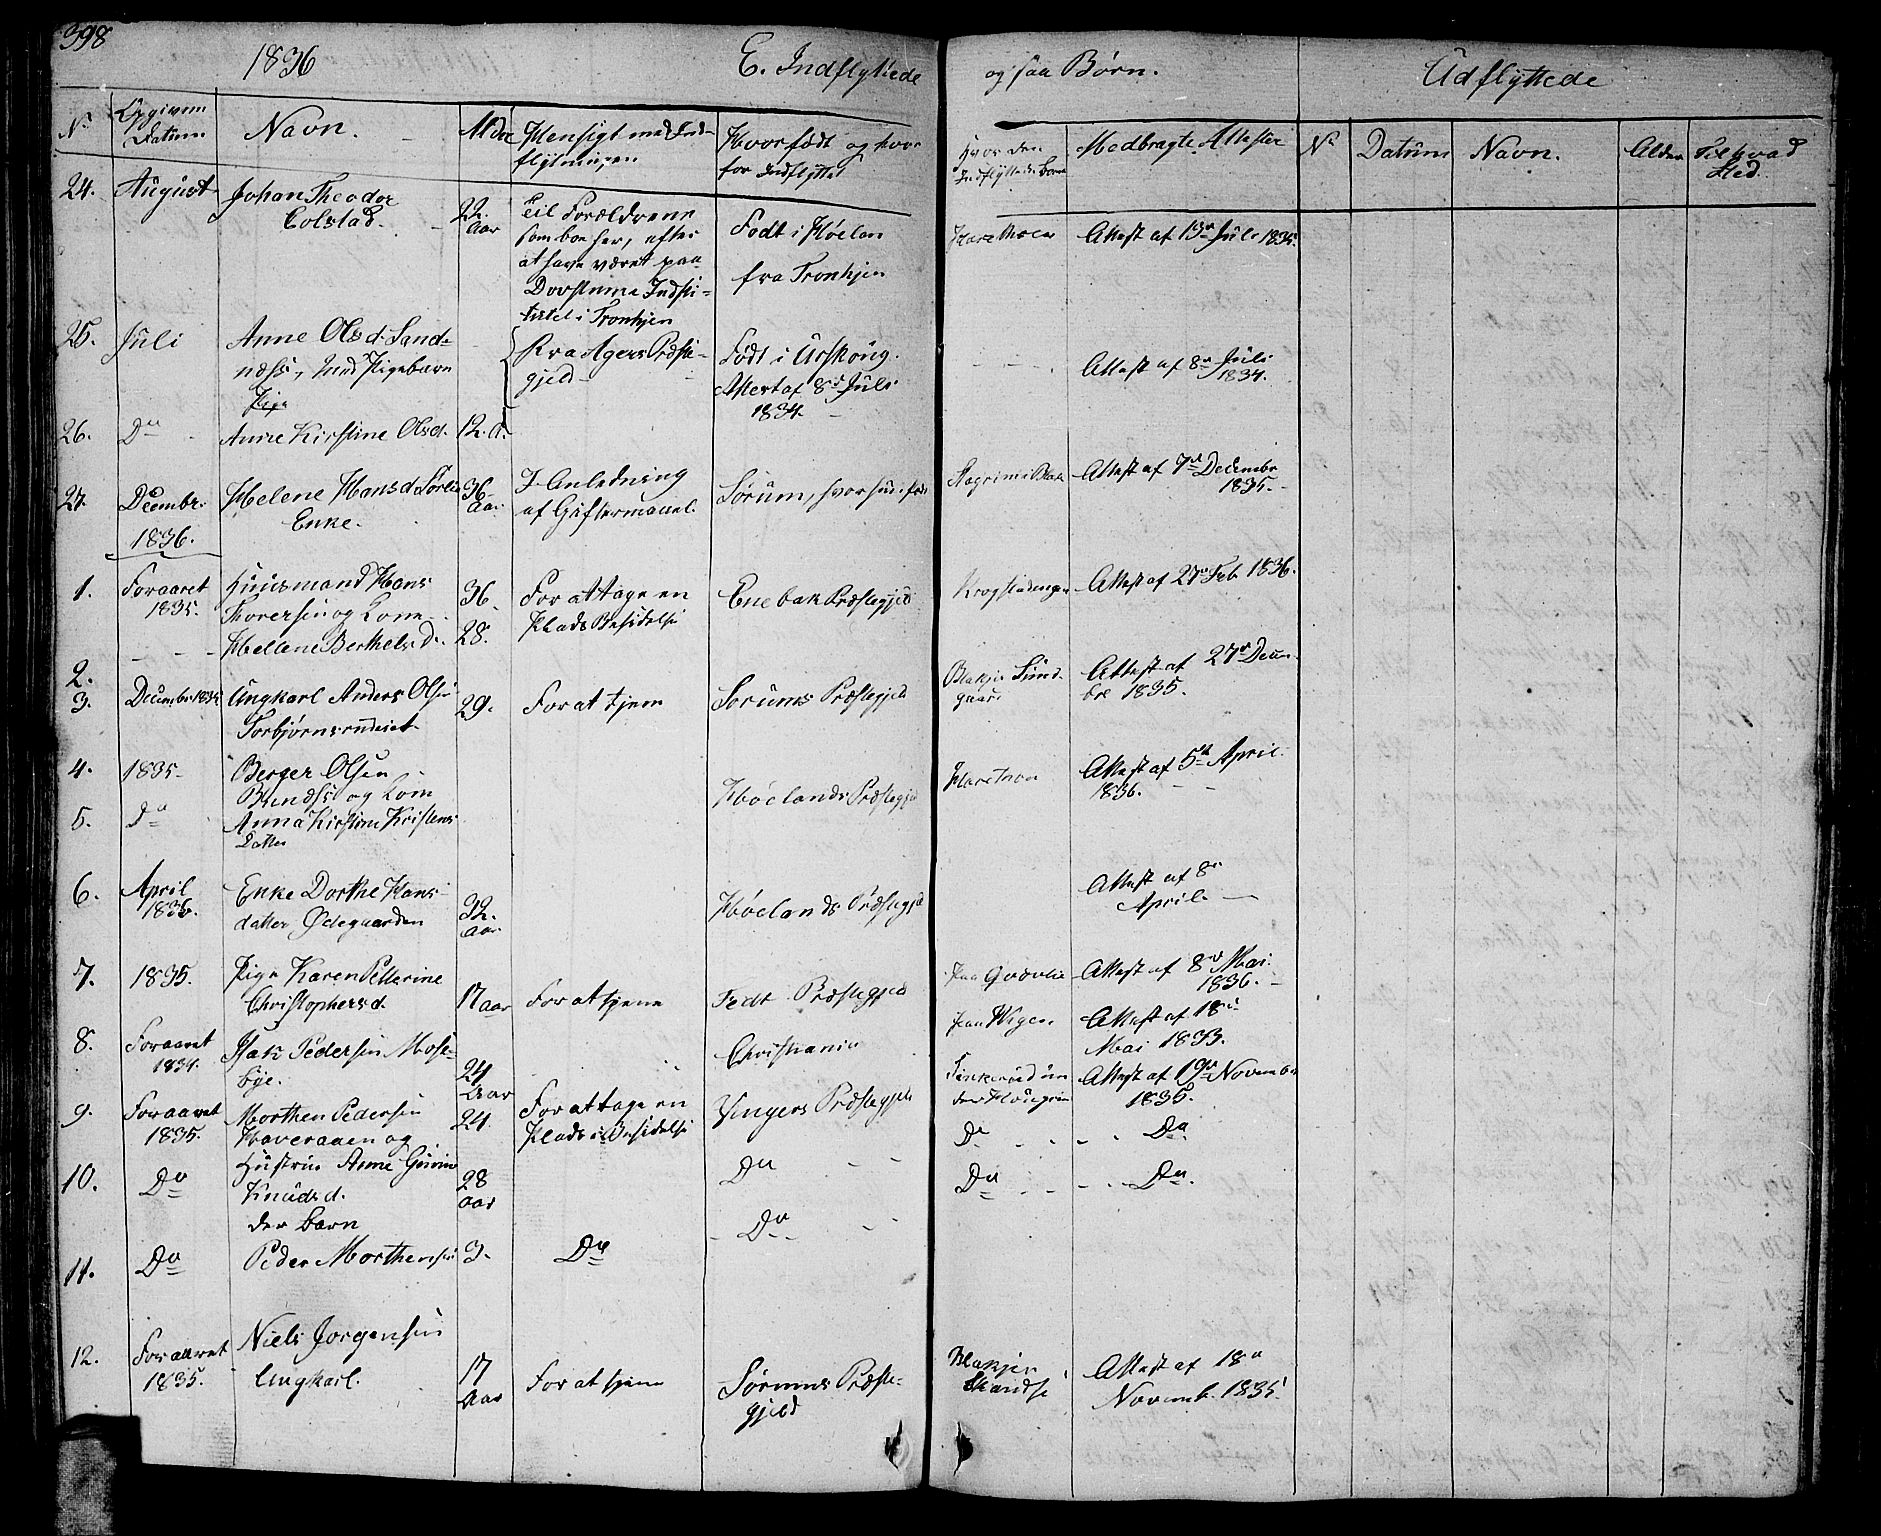 398
1836
E. Indflyttede
og saa Børn.
Udflyttede
No Opgiven Datum Navn. Alder Hensigt med Indflytningen Hvor født og hvor fra Indflyttet
Hvor den Indflyttede boer Medbragte Attester No Datum Navn. Alder Til hvad Sted.
24. August Johan Theodor
Colstad. 22 Aar
Til Forældrene
som boe her, efter
at have været paa
Dovstumme Indsti-
tutet i Tronhjen
Født i Høelan
fra Tronhjen
Attest af 13de Juli 1835.
25. Juli Anne Olsd. Sand-
næss, med Pigebarn
Pige
Fra Agers Præste-
gjeld
Født i Urskoug.
Attest af 8de Juli
1834.
Attest af 8de Juli
1834.
26. Do Anne Kirstine Olsd. 12.
27. Decembr. Helene Hansd. Sørlie
Enke. 36 Aar
I Anledning
af Giftermaael.
Sørum, hvor hun
Attest af 7de Decembr
1835.
1836.
1. Foraaret
1835.
Huusmand Hans
Thoversen og Kone
Hellene Berthelsd.
36.
28.
For at tage en
Plads i Besidelse
Enebak Præstegjeld
Attest af 27de Feb 1836.
2.
3. Decembr 1835 Ungkarl Anders Olsen
Torbjørnsrudeiet
29. For at tjene Sørums Præstegjeld
Attest af 27de Decem-
bre 1835.
4. 1835 Berger Olsen
og Kone
Høelands Præstegjeld
Attest af 5te April
1836.
5. Do Anna Kirstine Kristens
Datter
6. April
1836.
Enke Dorthe Hans
datter Ødegaarden
32.
Aar
Høelands Præstegjeld
Attest af 8de
April
7. 1835. Pige Karen Petterine
Christophersd.
17 aar For at tjene Fedt Præstegjeld
Attest af 8de Mai
1836.
8. Foraaret
1834.
Isak Pedersen Mose-
bye.
24
Aar
Christiania
Attest af 18de
Mai 1833.
9. Foraaret
1835.
Morthen Pedersen
Haveraaen og
24
For at tage en
Plads i Besidelse
Vingers Præstegjeld
Attest af 19de Novembr
1835.
Do Do
10. Do Hustrue Anne
Knudsd.
28
aar
Do
Do Do
der barn
11. Do Peder Morthensen 3. Do Do
12. Foraaret
1835.
Niels Jorgensen
Ungkarl.
17
Aar
For at tjene
Sørums Præste-
gjeld
Blakjer
Skandse
Attest af 18de
Novemb. 1835.